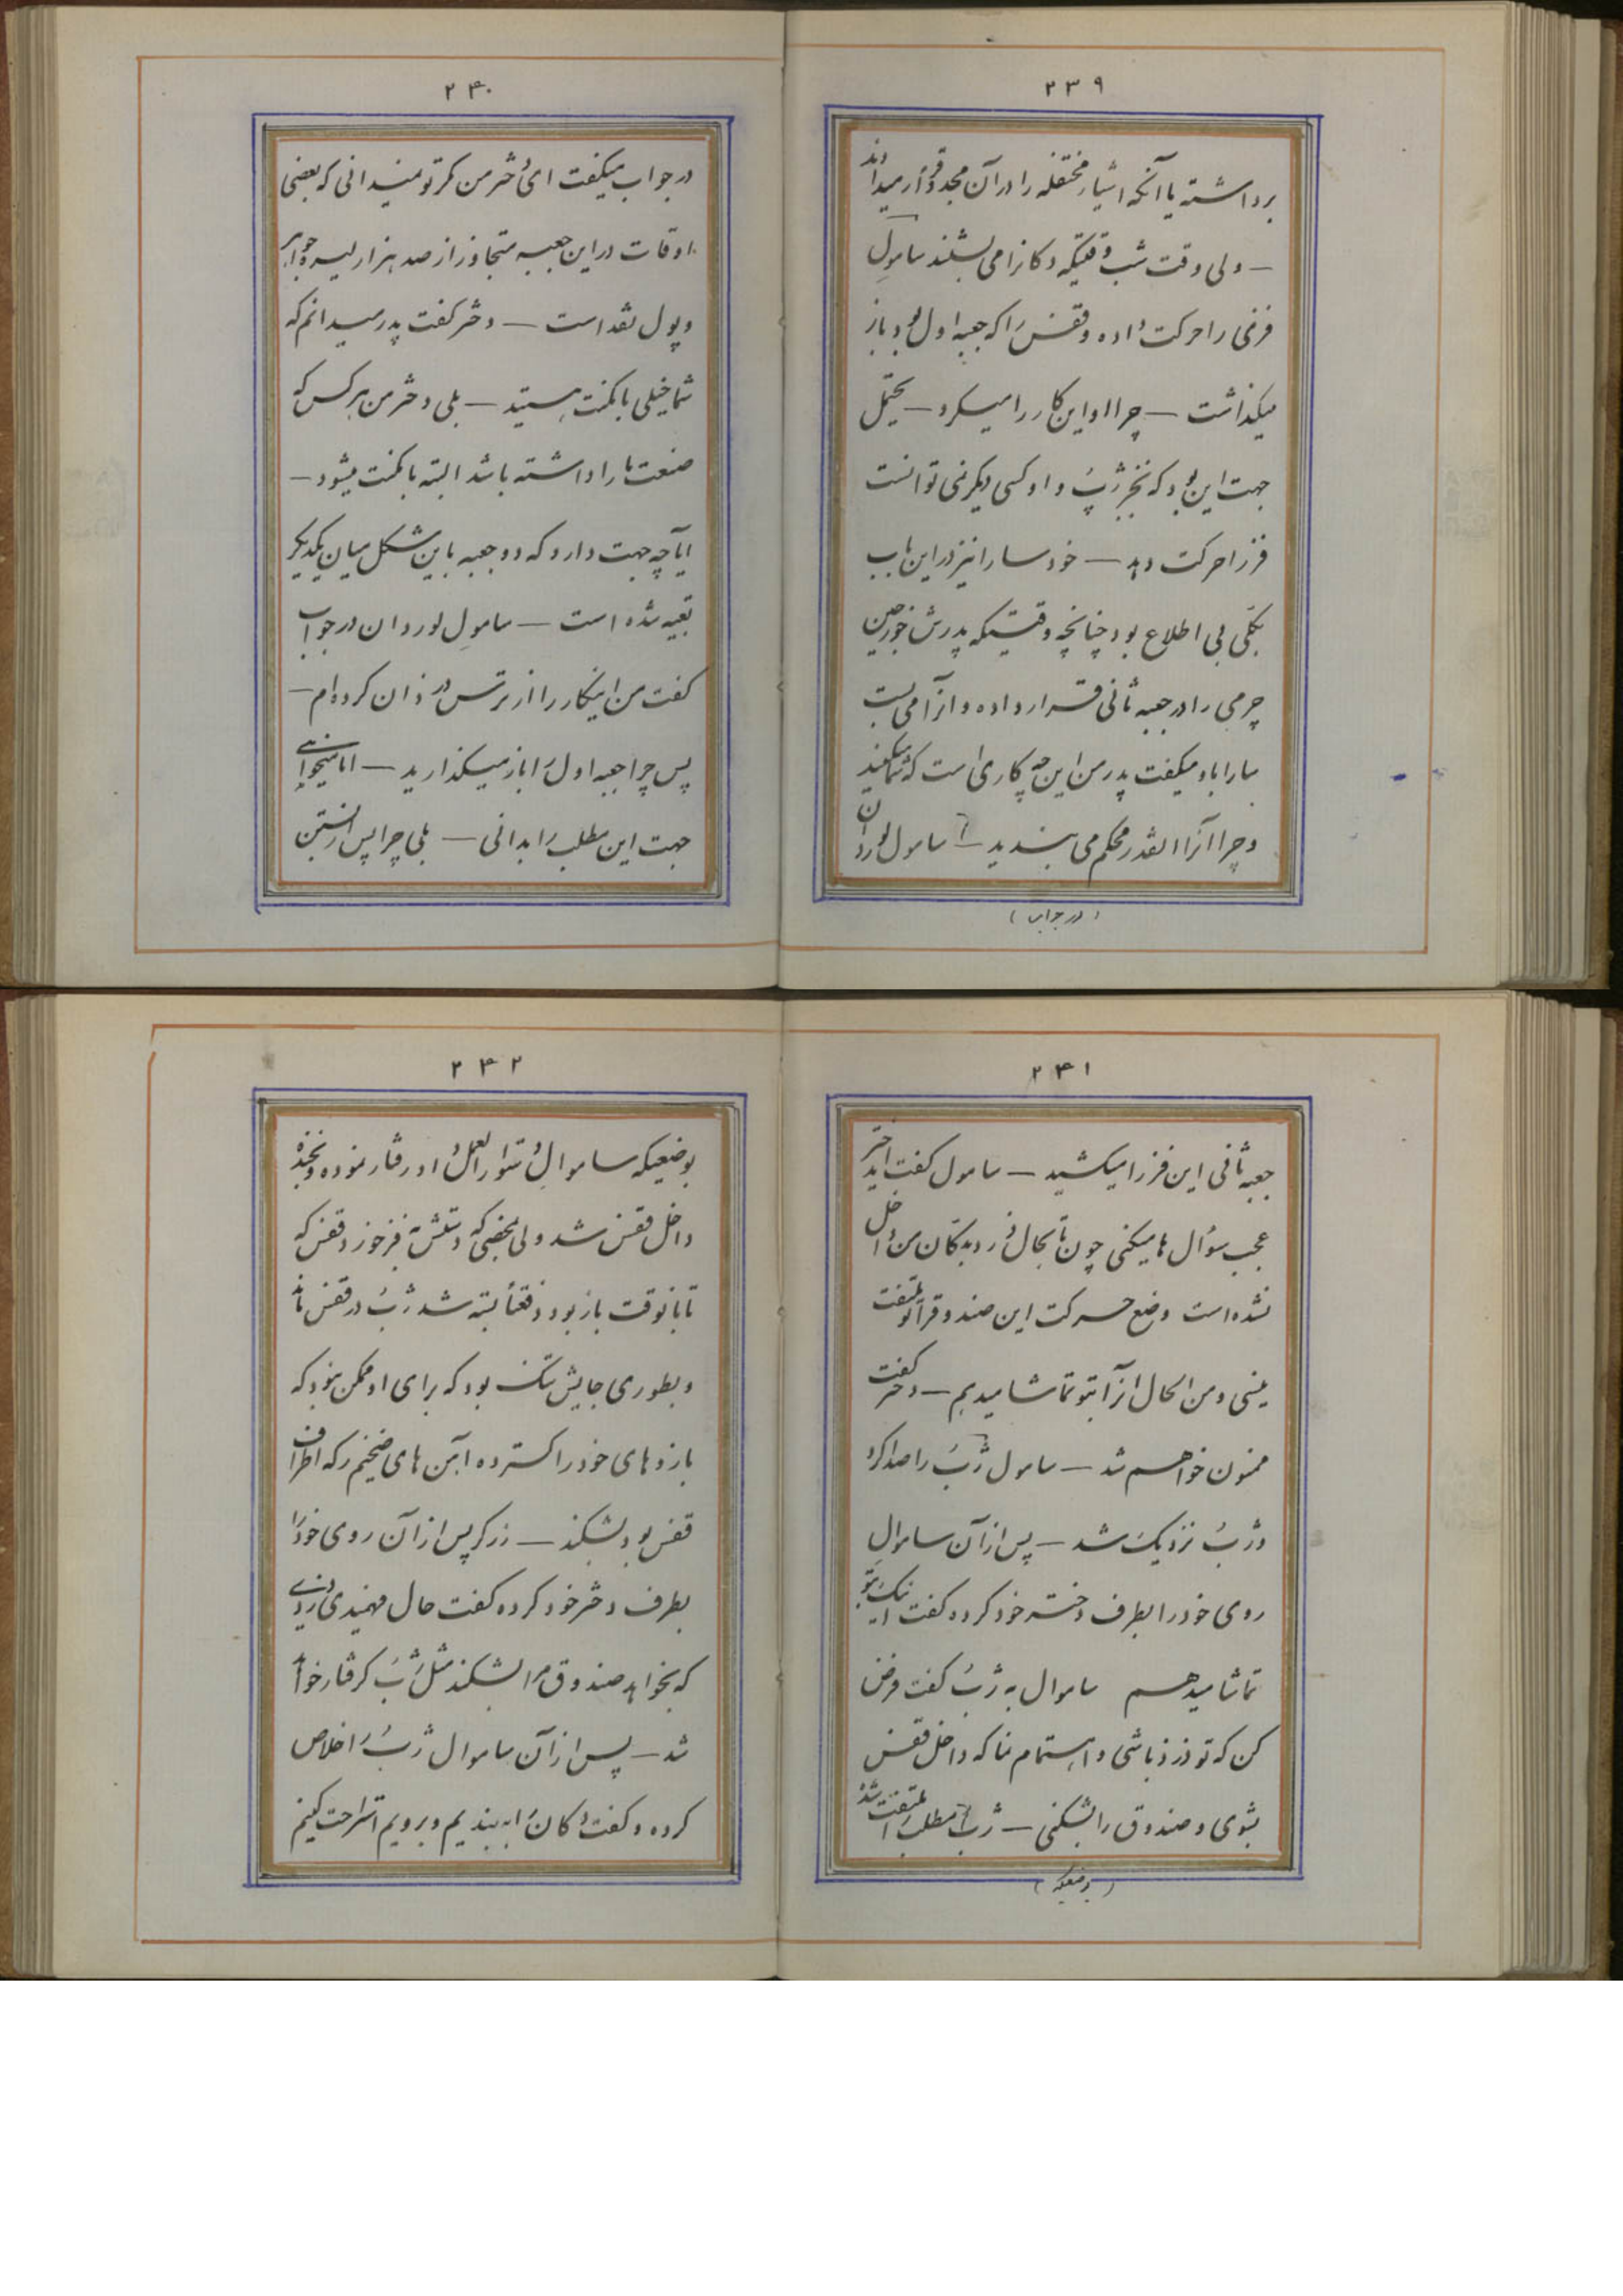 ۲۳۹
برداشته یا آنکه اشیاء مختلفه را در آن مجدد قرار میدادند
— ولی وقت شب وقتیکه دکانرا می بستند ساموِل
فرنی را حرکت داده و قفس را که جعبه اول بود باز
میگذاشت — چرا او این کار را میکرد — محتمل
جهت این بود که بخیر ژپ و او کسی دیگر نمی توانست
فنر را حرکت دهد — خود سارا نیز در این باب
بکلی بی اطلاع بود چنانچه وقتیکه پدرش خورجین
چرمی را در جعبه ثانی قرار داده و آنرا می بست
سارا باو میگفت پدر من این چه کاری است که شما میکنید
و چرا آنرا اینقدر محکم می بندید — ساموِل لوردان
(در جواب)
۲۴۰
در جواب میگفت ای دختر من مگر تو نمیدانی که بعضی
اوقات در این جعبه متجاوز از صد هزار لیره جواهر
و پول نقد است — دختر گفت پدر میدانم که
شما خیلی بامکنت هستید — بلی دختر من هر کس که
صنعت ما را داشته باشد البته بامکنت میشود —
ایا چه جهت دارد که دو جعبه باین شکل میان یکدیگر
تعبیه شده است — ساموِل لوردان در جواب
گفت من اینکار را از ترس دزدان کرده ام —
پس چرا جعبه اول را باز میگذارید — ایا میخواهی
جهت این مطلب را بدانی — بلی چرا پس از بستن
۲۴۱
جعبه ثانی این فنر را میکشید — ساموِل گفت ای دختر
عجب سؤال ها میکنی چون تا بحال دزد بدکان من داخل
نشده است وضع حرکت این صندوق را تو ملتفت
نیستی و من الحال آنرا بتو تماشا میدهم — دختر گفت
ممنون خواهم شد — ساموِل ژپ را صدا کرد
و ژپ نزدیک شد — پس از آن ساموال
روی خود را بطرف دختر خود کرده گفت اینک بتو
تماشا میدهم ساموال به ژپ گفت فرض
کن که تو دزد باشی و اهتمام نما که داخل قفس
بشوی و صندوق را بشکنی — ژپ مطلب را ملتفت شده
(بوضعیکه)
۲۴۲
بوضعیکه ساموال دستورالعمل داد رفتار نموده و بخنده
داخل قفس شد ولی بمحضی که دستش به فنر خورد قفس که
تا بانوقت باز بود دفعتاً بسته شد ژپ در قفس ماند
و بطوری جایش تنگ بود که برای او ممکن نبود که
بازوهای خود را گسترده آهن های ضخیم را که اطراف
قفس بود بشکند — زرگر پس از آن روی خود را
بطرف دختر خود کرده گفت حال فهمیدی دزدی
که بخواهد صندوق مرا بشکند مثل ژپ گرفتار خواهد
شد — پس از آن ساموال ژپ را خلاص
کرده و گفت دکان را به بندیم و برویم استراحت کنیم